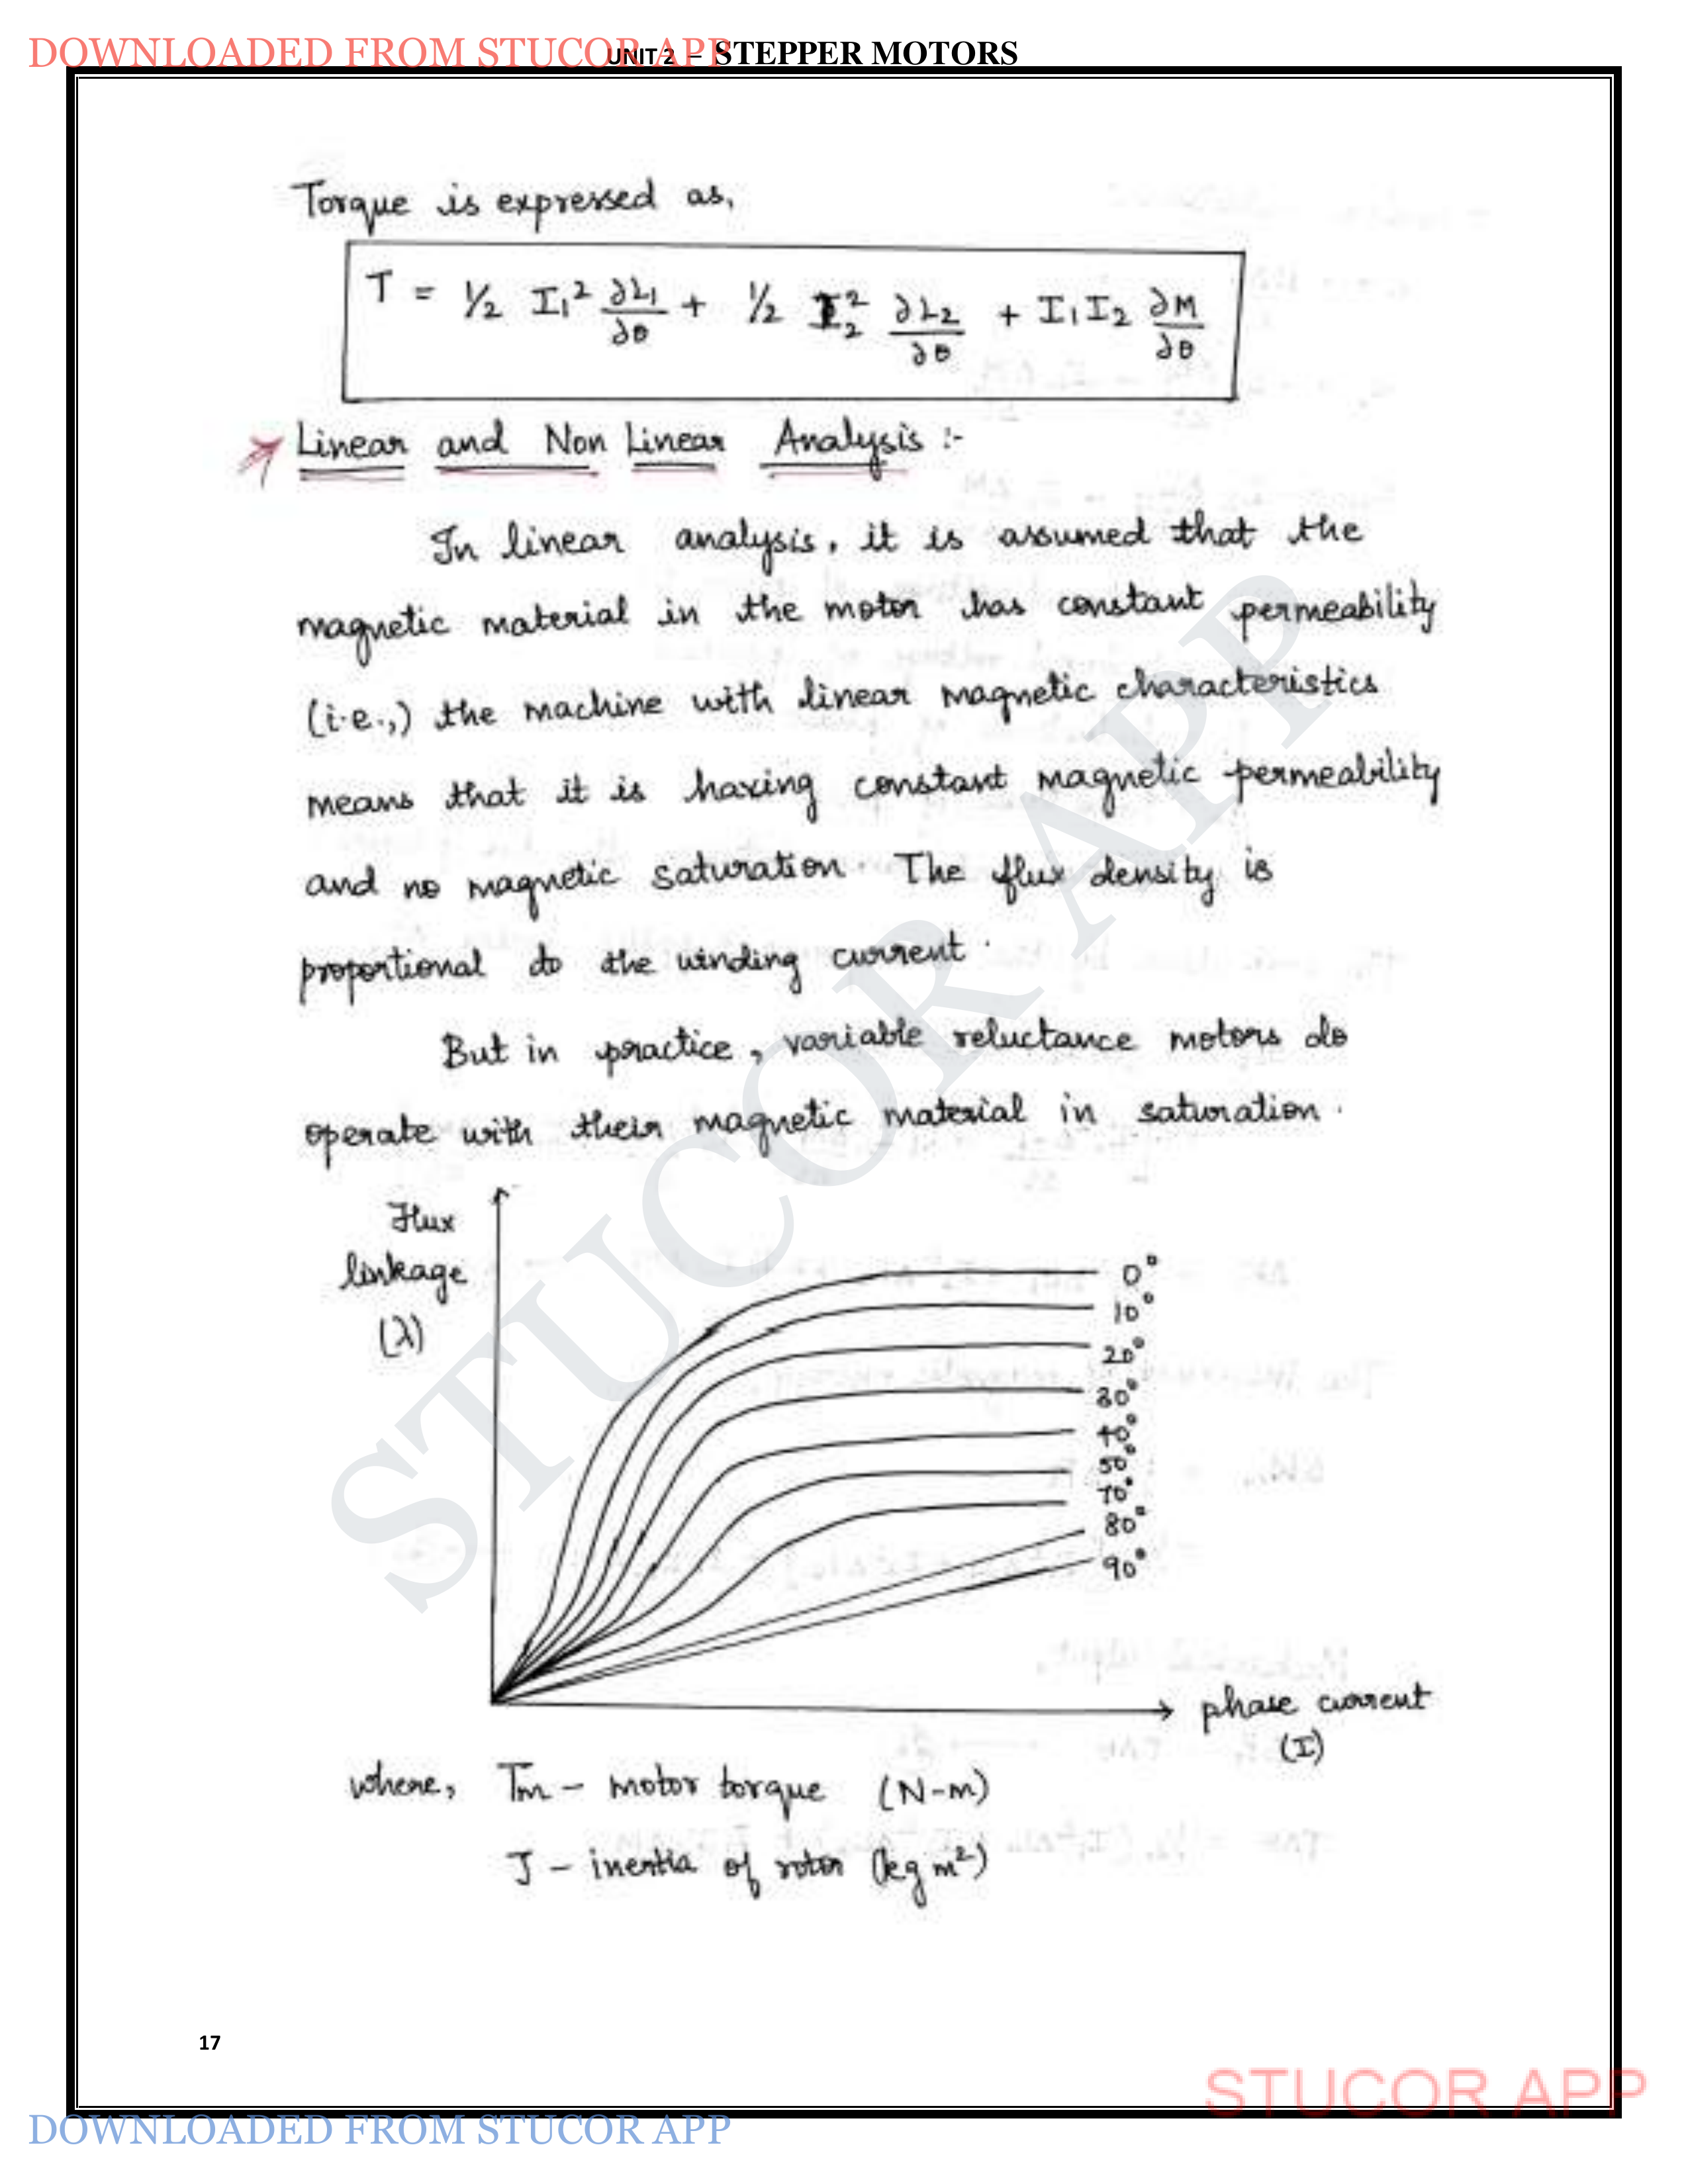 DOWNLOADED FROM STUCOR APP
UNIT 2 – STEPPER MOTORS
Torque is expressed as,
T = 1/2 I₁² ∂L₁/∂θ + 1/2 I₂² ∂L₂/∂θ + I₁I₂ ∂M/∂θ
Linear and Non Linear Analysis :-
In linear analysis, it is assumed that the
magnetic material in the motor has constant permeability
(i.e.,) the machine with linear magnetic characteristics
means that it is having constant magnetic permeability
and no magnetic saturation. The flux density is
proportional to the winding current.
But in practice, variable reluctance motors do
operate with their magnetic material in saturation.
Flux
linkage
(λ)
0°
10°
20°
30°
40°
50°
70°
80°
90°
phase current
(I)
where, Tm – motor torque (N-m)
J – inertia of rotor (kg m²)
STUCOR APP
17
STUCOR APP
DOWNLOADED FROM STUCOR APP